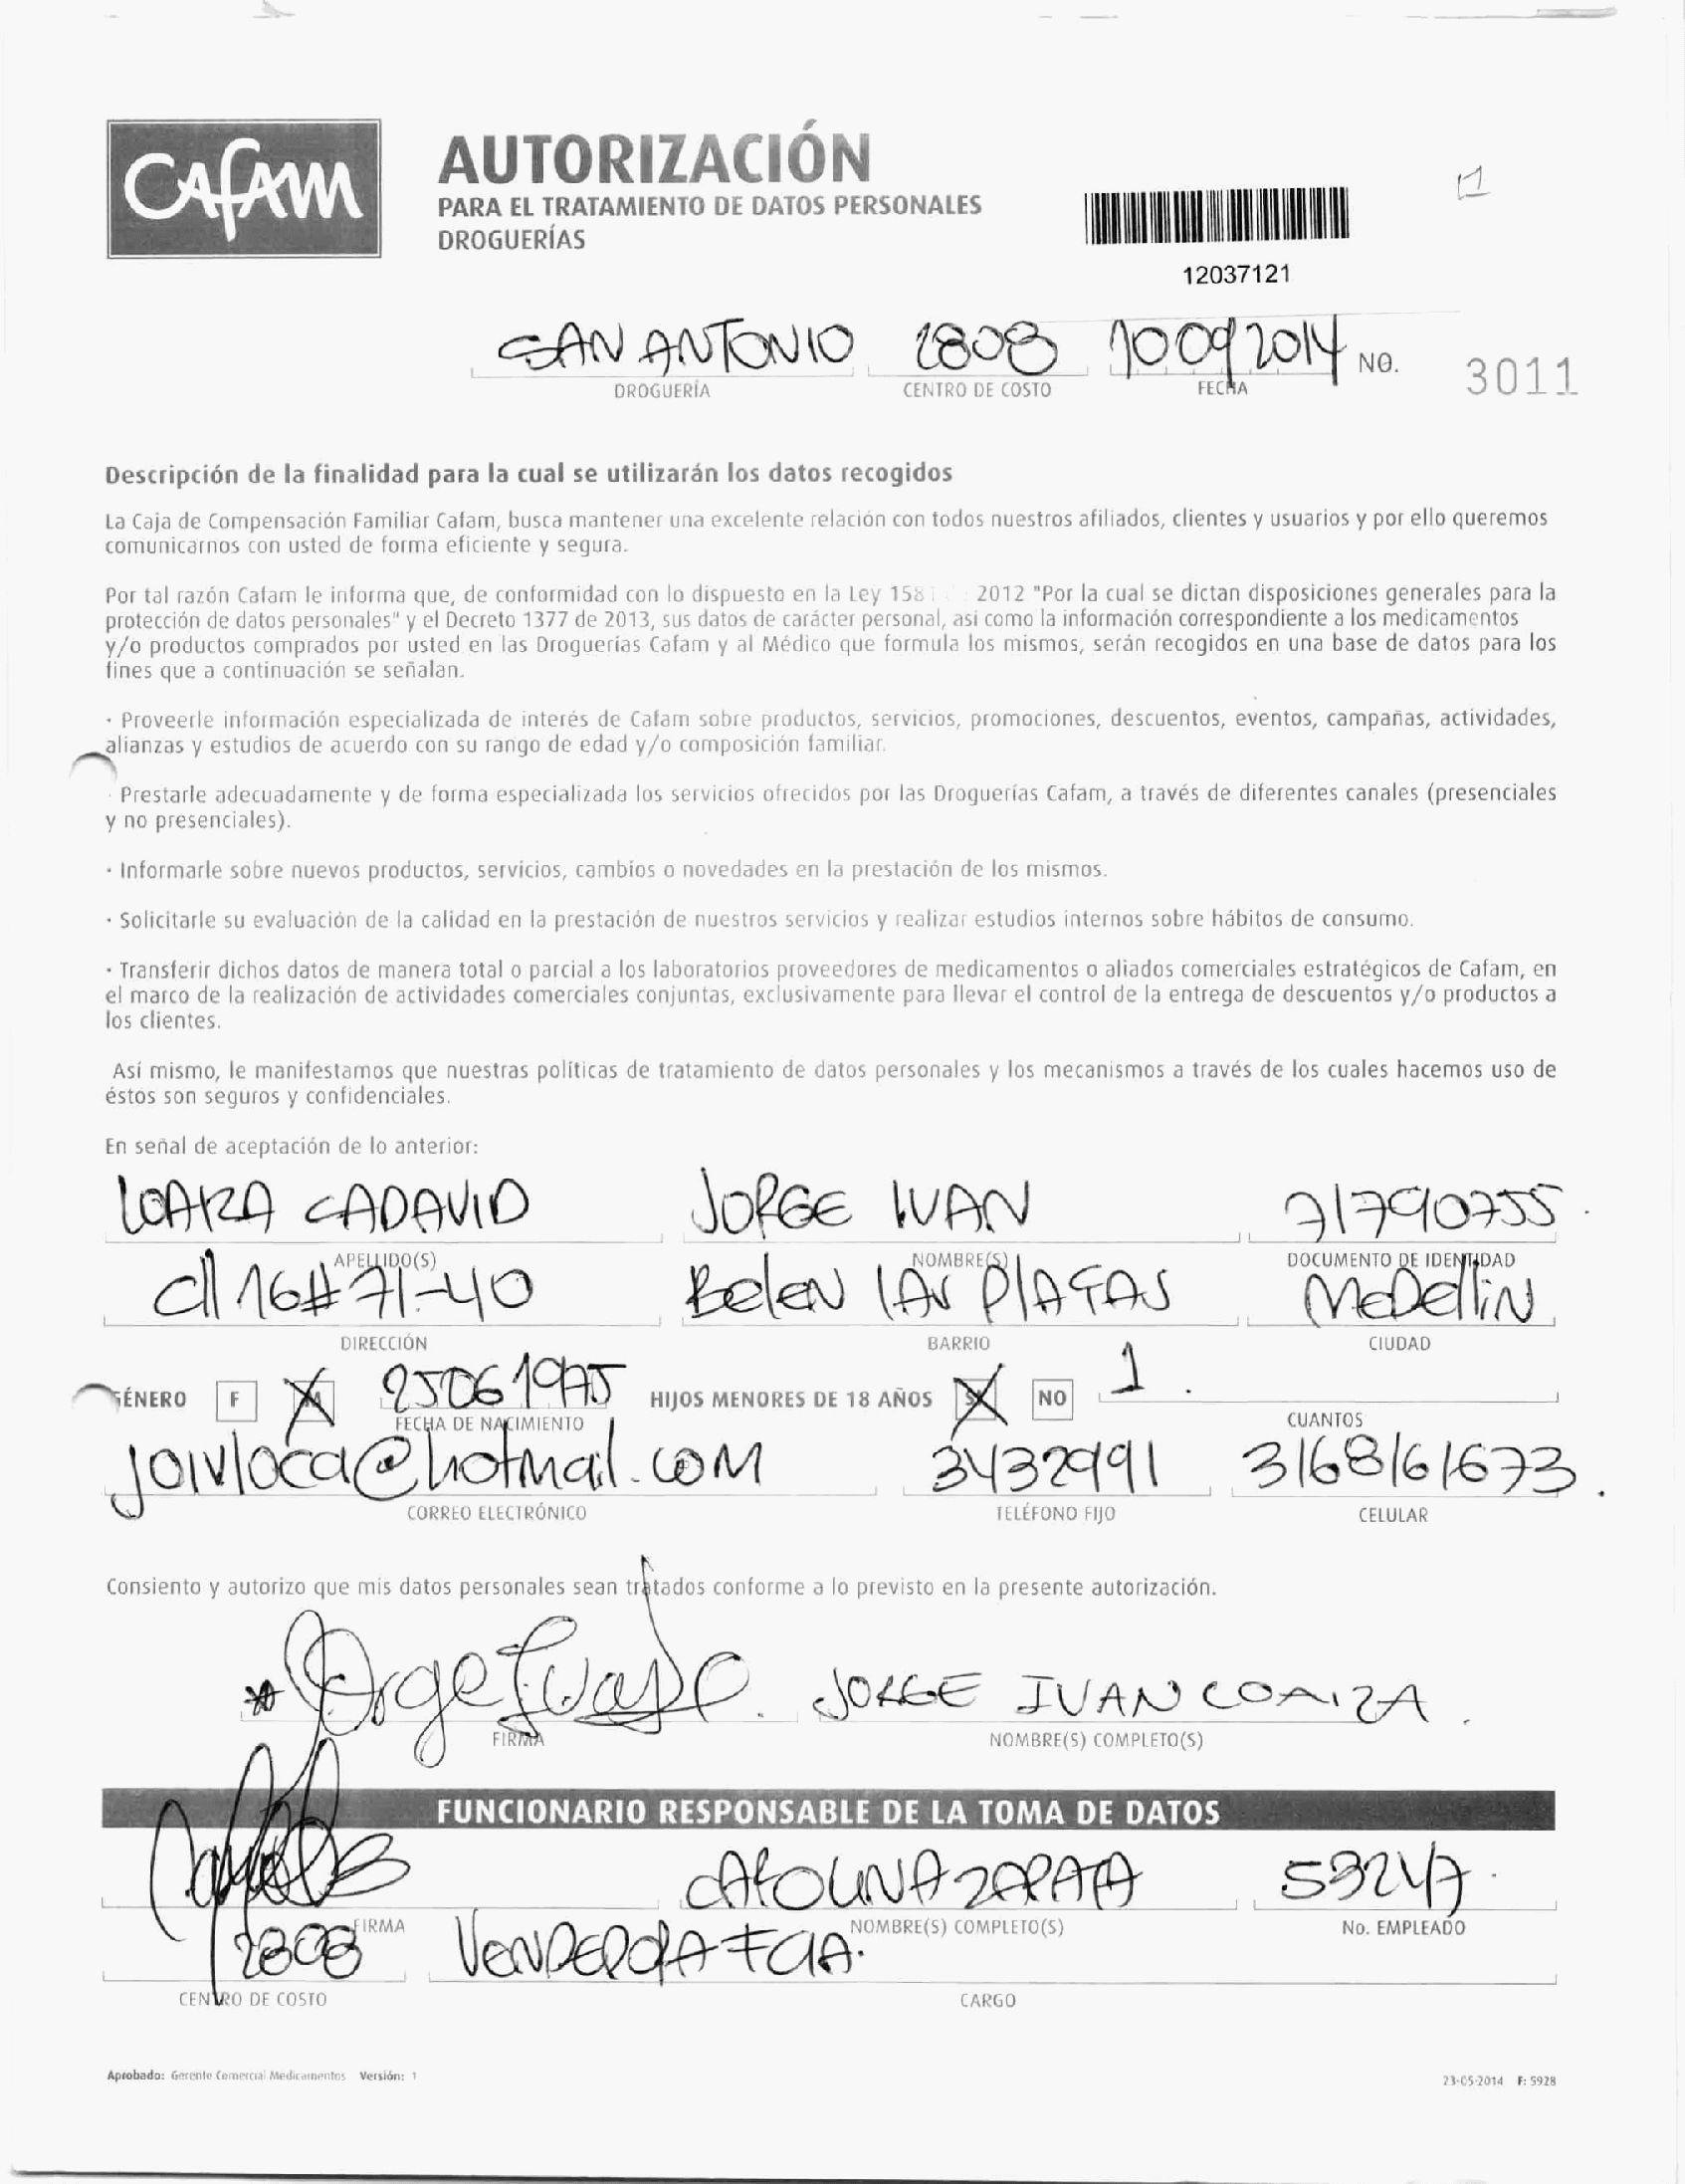 CAFAM
AUTORIZACIÓN
PARA EL TRATAMIENTO DE DATOS PERSONALES
DROGUERÍAS
12037121
SAN ANTONIO 2808 10092014 NO. 3011
DROGUERÍA CENTRO DE COSTO FECHA
Descripción de la finalidad para la cual se utilizarán los datos recogidos
La Caja de Compensación Familiar Cafam, busca mantener una excelente relación con todos nuestros afiliados, clientes y usuarios y por ello queremos
comunicarnos con usted de forma eficiente y segura.
Por tal razón Cafam le informa que, de conformidad con lo dispuesto en la Ley 1581 2012 "Por la cual se dictan disposiciones generales para la
protección de datos personales" y el Decreto 1377 de 2013, sus datos de carácter personal, así como la información correspondiente a los medicamentos
y/o productos comprados por usted en las Droguerías Cafam y al Médico que formula los mismos, serán recogidos en una base de datos para los
fines que a continuación se señalan.
· Proveerle información especializada de interés de Cafam sobre productos, servicios, promociones, descuentos, eventos, campañas, actividades,
alianzas y estudios de acuerdo con su rango de edad y/o composición familiar.
· Prestarle adecuadamente y de forma especializada los servicios ofrecidos por las Droguerías Cafam, a través de diferentes canales (presenciales
y no presenciales).
· Informarle sobre nuevos productos, servicios, cambios o novedades en la prestación de los mismos.
· Solicitarle su evaluación de la calidad en la prestación de nuestros servicios y realizar estudios internos sobre hábitos de consumo.
· Transferir dichos datos de manera total o parcial a los laboratorios proveedores de medicamentos o aliados comerciales estratégicos de Cafam, en
el marco de la realización de actividades comerciales conjuntas, exclusivamente para llevar el control de la entrega de descuentos y/o productos a
los clientes.
Así mismo, le manifestamos que nuestras políticas de tratamiento de datos personales y los mecanismos a través de los cuales hacemos uso de
éstos son seguros y confidenciales.
En señal de aceptación de lo anterior:
LOAIZA CADAVID JORGE IVAN 71790755
APELLIDO(S) NOMBRE(S) DOCUMENTO DE IDENTIDAD
Cll 16#71-40 Belen LAS PlAYAS MeDelliN
DIRECCIÓN BARRIO CIUDAD
GÉNERO F M 25061975 HIJOS MENORES DE 18 AÑOS SI NO 1
FECHA DE NACIMIENTO CUANTOS
joivloca@hotmail.com 3432991 3168161673
CORREO ELECTRÓNICO TELÉFONO FIJO CELULAR
Consiento y autorizo que mis datos personales sean tratados conforme a lo previsto en la presente autorización.
JORGE IVAN LOAIZA
FIRMA NOMBRE(S) COMPLETO(S)
FUNCIONARIO RESPONSABLE DE LA TOMA DE DATOS
CAROLINA ZAPATA 5324A
FIRMA NOMBRE(S) COMPLETO(S) No. EMPLEADO
2808 VENDEDORA FCIA.
CENTRO DE COSTO CARGO
Aprobado: Gerente Comercial Medicamentos Versión: 1
23-05-2014 F: 5928